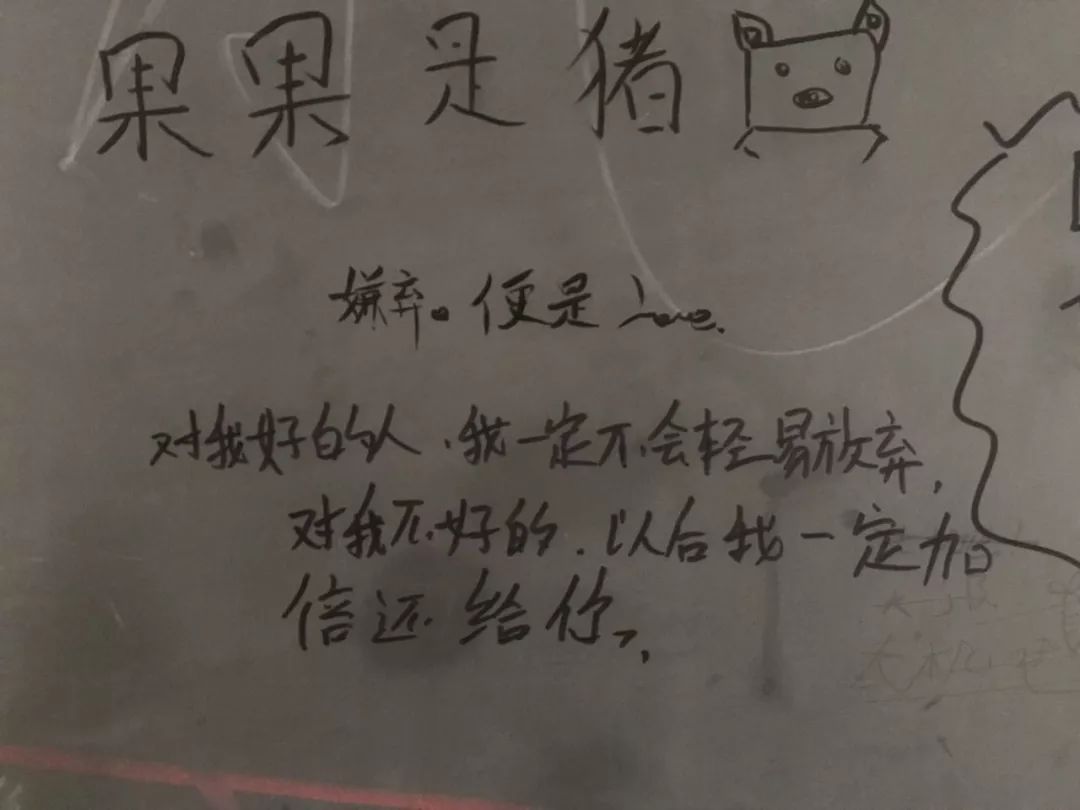 果果是猪
嫌弃。便是
对我好的人.我一定不会轻易放弃,
对我不好的.以后我一定加
倍还给你、.